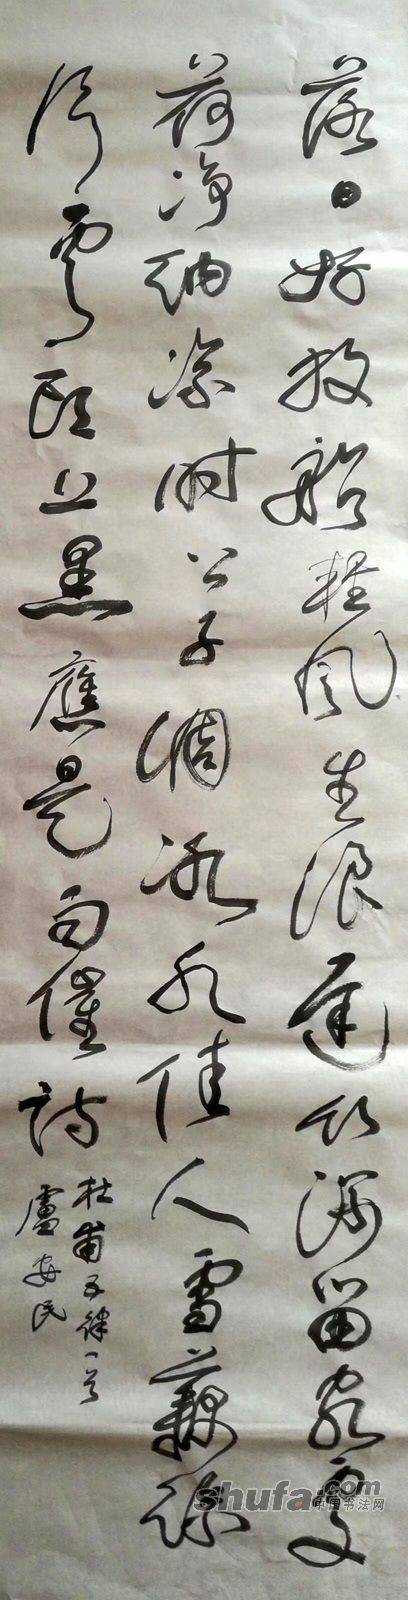 落日好放船輕風生浪遲竹深留客處
荷净纳凉时公子調冰水佳人雪藕絲
片雲頭上黑應是雨催詩
杜甫五律一首
盧安民
shufa.com
中国书法网